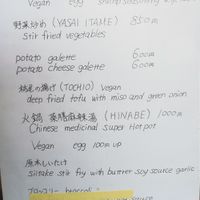 Vegan egg
野菜炒め (YASAI ITAME) 850円
Stir fried vegetables
potato galette 600円
potato cheese galette 600円
栃尾の揚げ (TOCHIO) Vegan
deep fried tofu with miso and green onion
火鍋 薬膳麻辣湯 (HINABE) 1000円
Chinese medicinal super Hotpot
Vegan egg 100円 up
原木しいたけ
siitake stir fry with butter soy source garlic
ブロッコリー broccoli